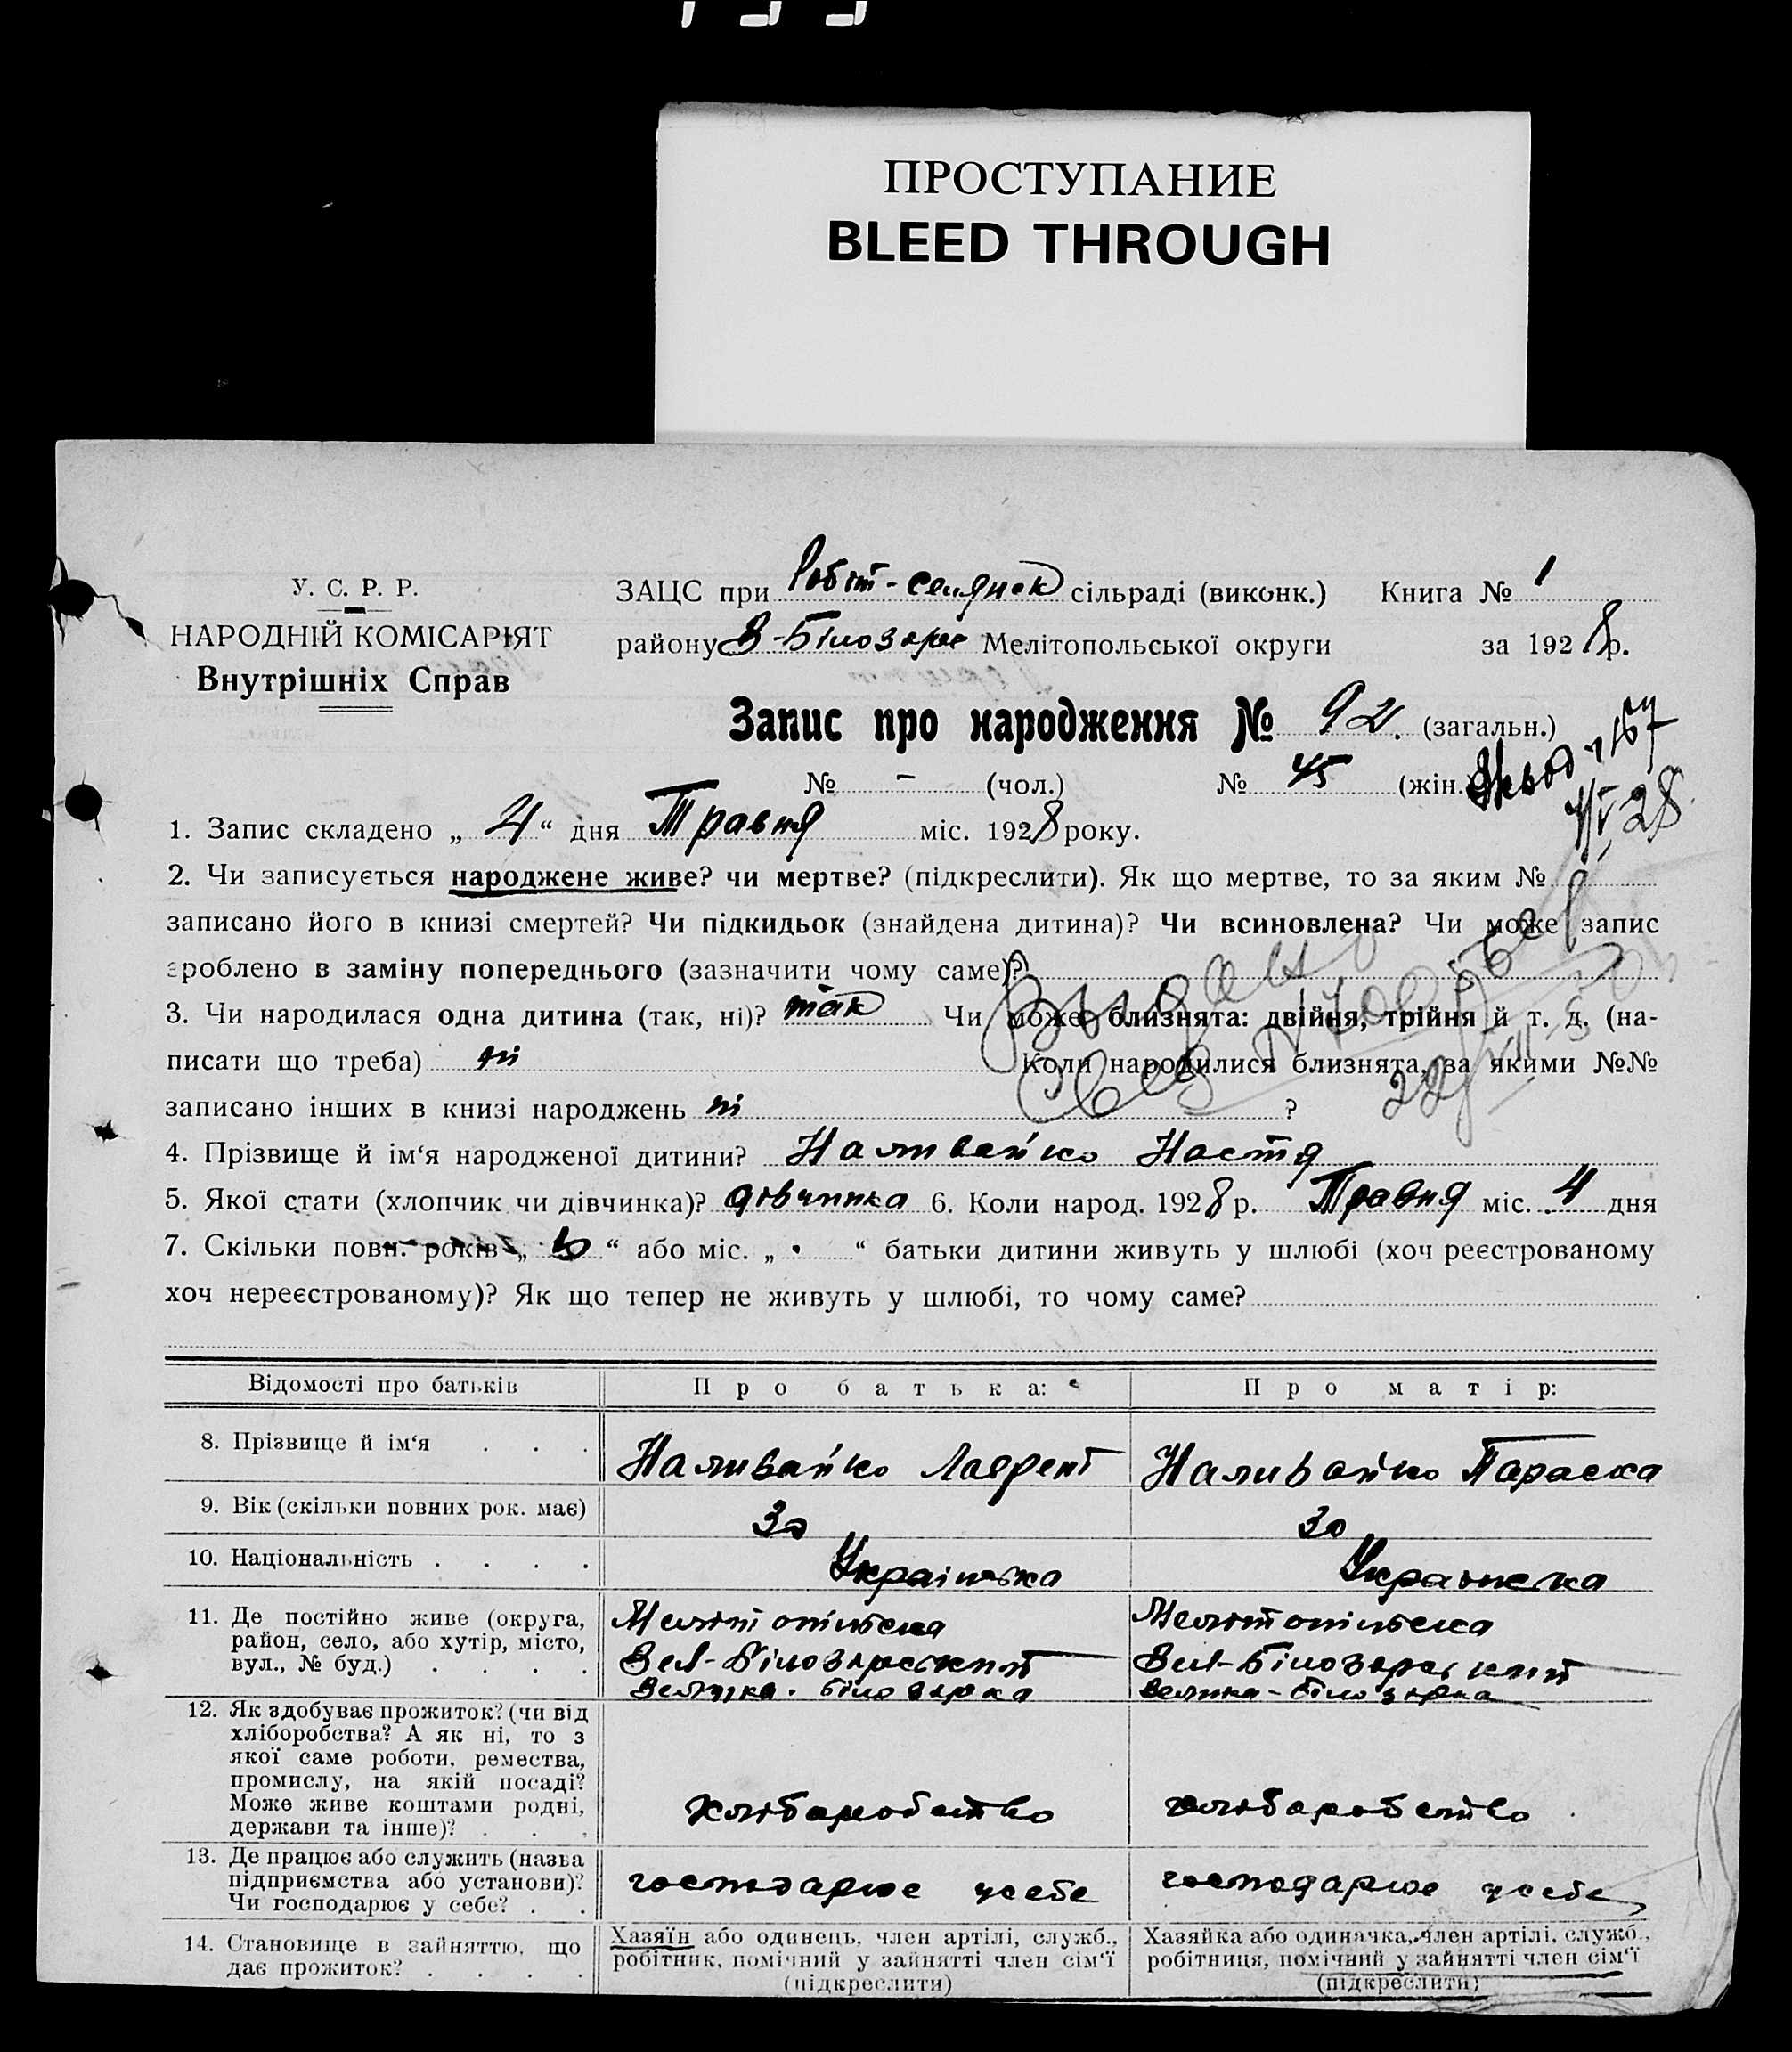 ПРОСТУПАНИЕ
BLEED THROUGH
У. С. Р. Р.
НАРОДНІЙ КОМІСАРІЯТ
Внутрішніх Справ
ЗАЦС при Робіт-селянск сільраді (виконк.) Книга № 1
району В-Білозерс Мелітопольської округи за 1928 р.
Запис про народження № 92. (загальн.)
№ – (чол.) № 45 (жін.)
1. Запис складено „ 4 “ дня Травня міс. 1928 року.
2. Чи записується народжене живе? чи мертве? (підкреслити). Як що мертве, то за яким №
записано його в книзі смертей? Чи підкидьок (знайдена дитина)? Чи всиновлена? Чи може запис
зроблено в заміну попереднього (зазначити чому саме)?
3. Чи народилася одна дитина (так, ні)? так Чи може близнята: двійня, трійня й т. д. (на-
писати що треба) ні Коли народилися близнята, за якими №№
записано інших в книзі народжень ні ?
4. Прізвище й ім‘я народженої дитини? Наливайко Настя
5. Якої стати (хлопчик чи дівчинка)? дівчинка 6. Коли народ. 1928 р. Травня міс. 4 дня
7. Скільки повн. років „ “ або міс. „ “ батьки дитини живуть у шлюбі (хоч реєстрованому
хоч нереєстрованому)? Як що тепер не живуть у шлюбі, то чому саме?
Відомості про батьків Про батька: Про матір:
8. Прізвище й ім‘я . . . Наливайко Лаврент Наливайко Параска
9. Вік (скільки повних рок. має) 30 30
10. Національність . . . . Українська Українська
11. Де постійно живе (округа, Мелітопільська Мелітопільська
район, село, або хутір, місто, Вел-Білозерський Вел-Білозерський
вул., № буд.) . . . . Велика-Білозерка Велика-Білозерка
12. Як здобуває прожиток? (чи від
хліборобства? А як ні, то з
якої саме роботи, ремества,
промислу, на якій посаді?
Може живе коштами родні, хліборобство хліборобство
держави та інше)? . . .
13. Де працює або служить (назва
підприємства або установи)? господарює у себе господарює у себе
Чи господарює у себе? . .
14. Становище в зайняттю, що Хазяїн або одинець, член артілі, служб., Хазяйка або одиначка, член артілі, служб.,
дає прожиток? . . . . робітник, помічний у зайнятті член сім‘ї робітниця, помічний у зайнятті член сім‘ї
(підкреслити) (підкреслити)